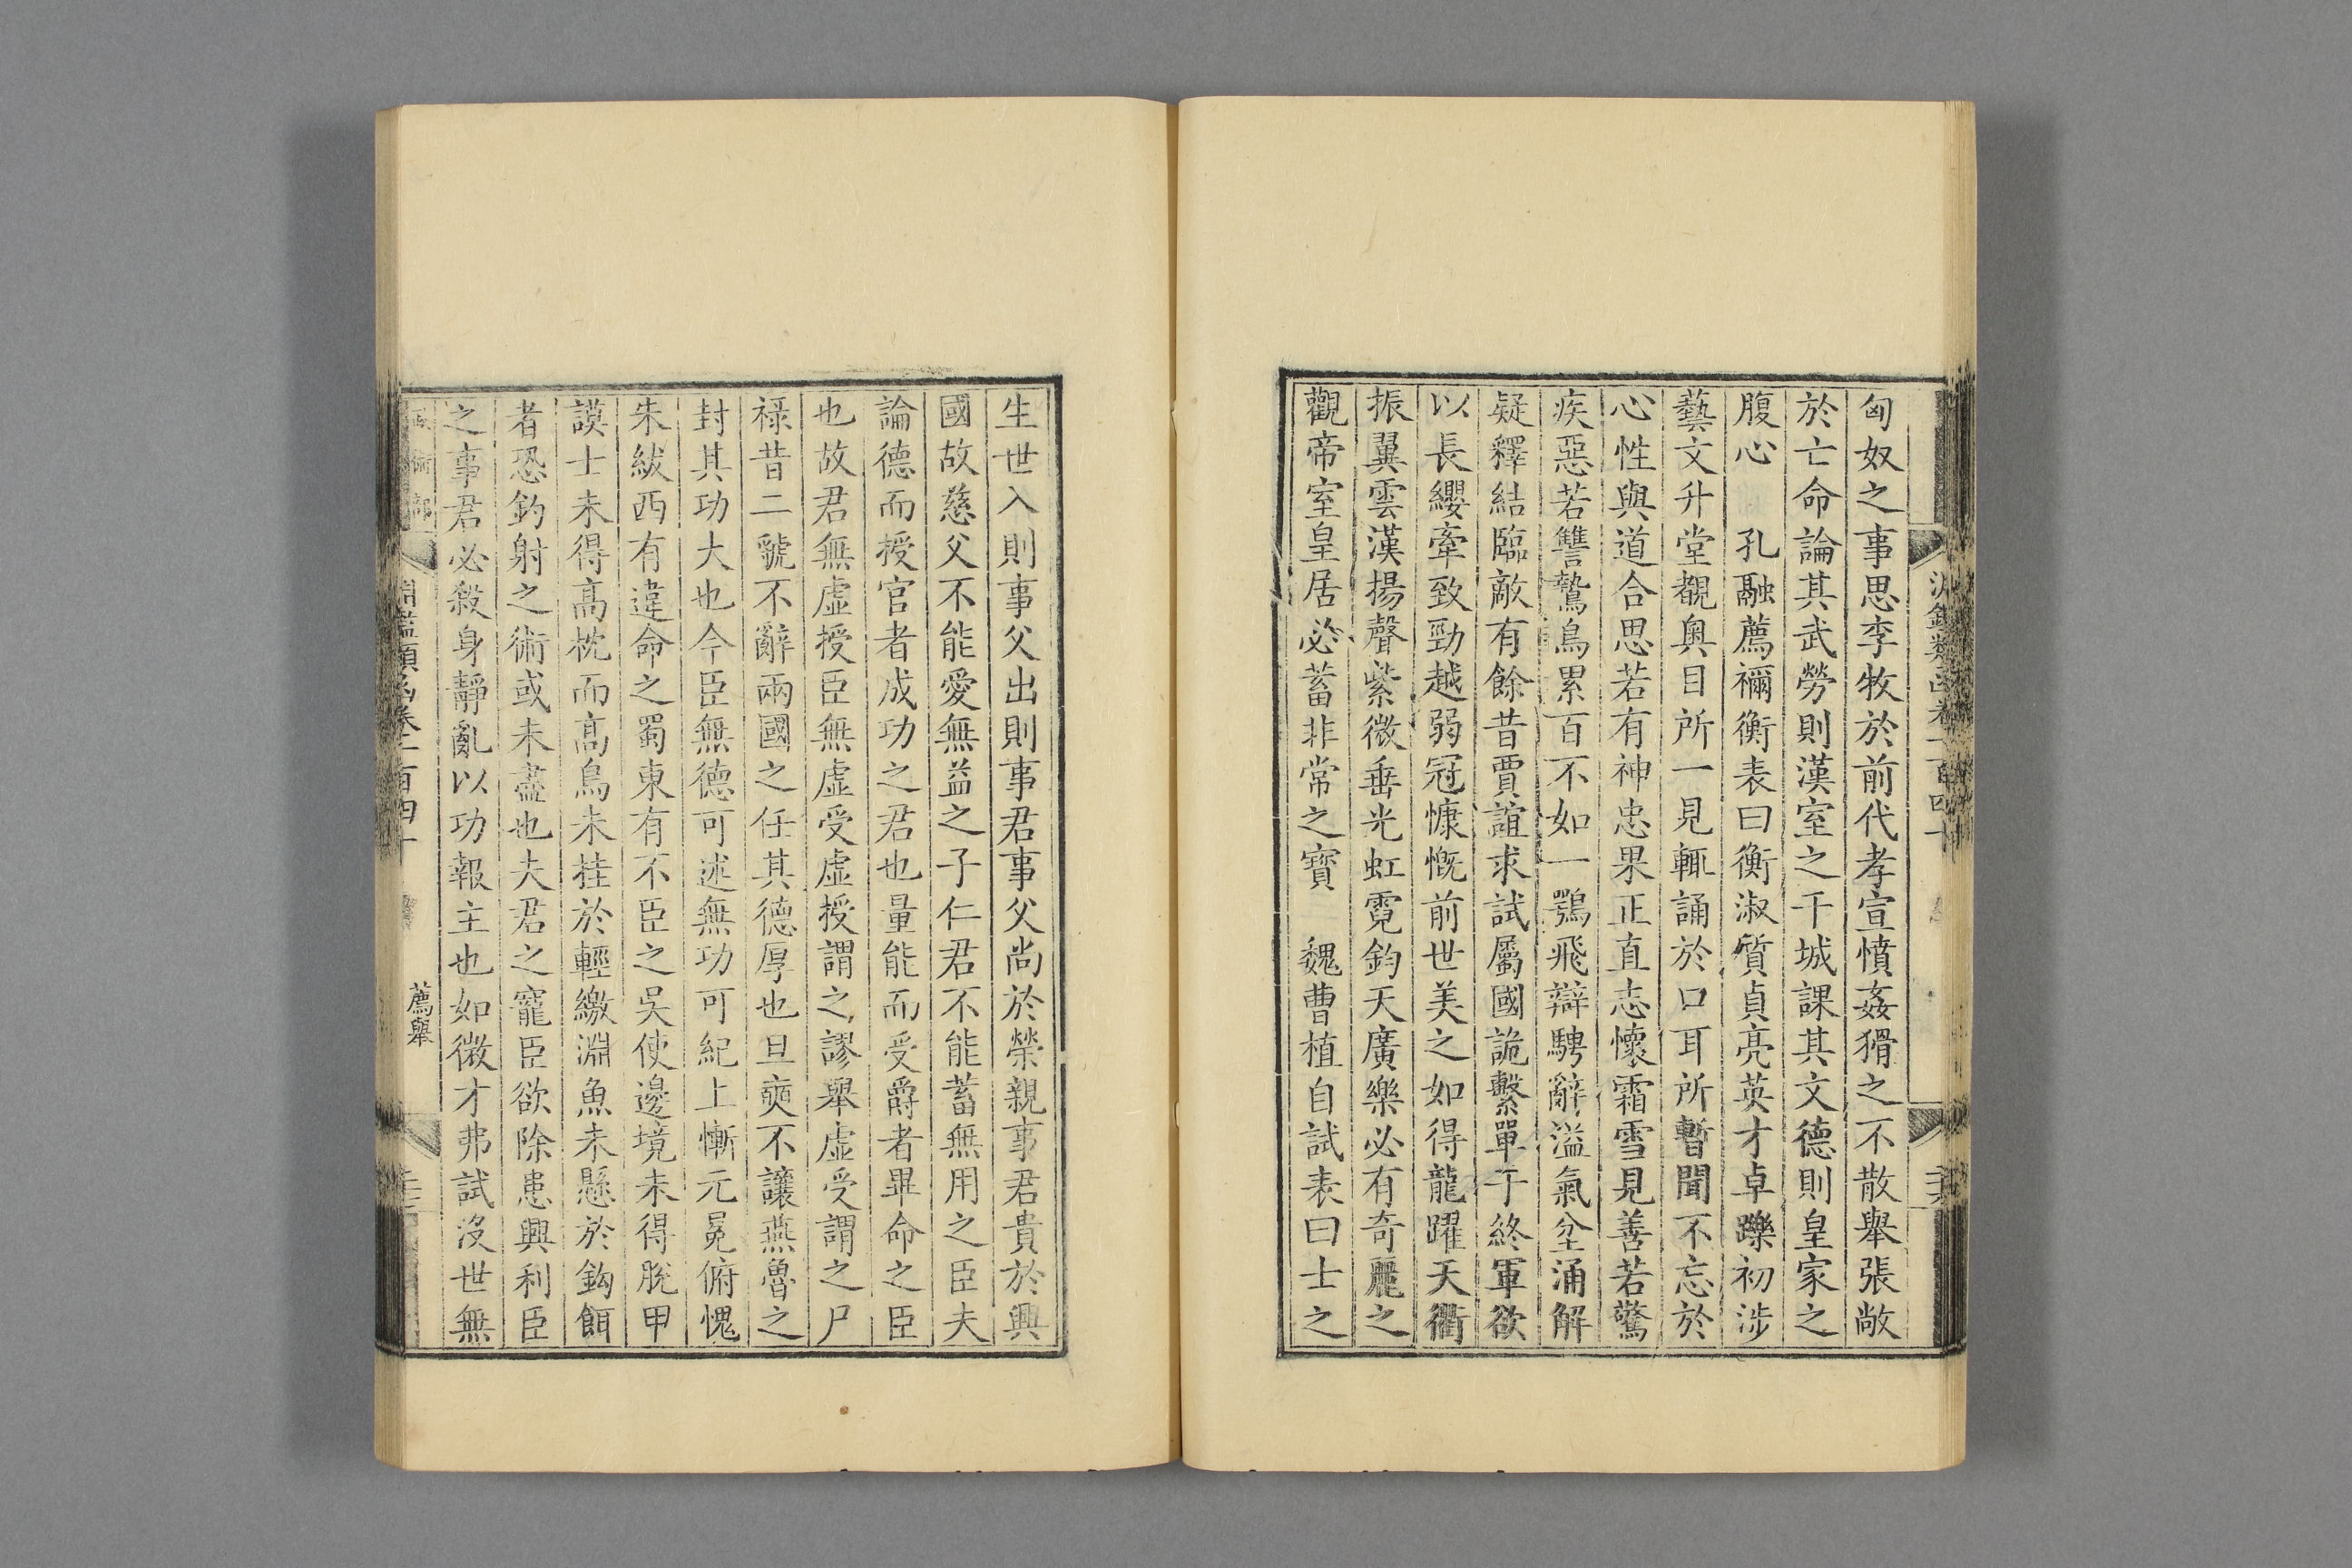 匈奴之事思李牧於前代孝宣憤姦猾之不散舉張敞
於亡命論其武勞則漢室之干城課其文德則皇家之
腹心　孔融薦禰衡表曰衡淑質貞亮英才卓躒初涉
藝文升堂覩奥目所一見輒誦於口耳所暫聞不忘於
心性與道合思若有神忠果正直志懷霜雪見善若驚
疾惡若讐鷙鳥累百不如一鶚飛辯騁辭溢氣坌涌解
疑釋結臨敵有餘昔賈誼求試屬國詭繫單于終軍欲
以長纓牽致勁越弱冠慷慨前世美之如得龍躍天衢
振翼雲漢揚聲紫微垂光虹霓鈞天廣樂必有奇麗之
觀帝室皇居必蓄非常之寶　魏曹植自試表曰士之
生世入則事父出則事君事父尚於榮親事君貴於興
國故慈父不能愛無益之子仁君不能蓄無用之臣夫
論德而授官者成功之君也量能而受爵者畢命之臣
也故君無虛授臣無虛受虛授謂之謬舉虛受謂之尸
祿昔二虢不辭兩國之任其德厚也旦奭不讓燕魯之
封其功大也今臣無德可述無功可紀上慚元冕俯愧
朱紱西有違命之蜀東有不臣之吳使邊境未得脫甲
謨士未得高枕而高鳥未挂於輕繳淵魚未懸於鈎餌
者恐釣射之術或未盡也夫君之寵臣欲除患興利臣
之事君必殺身靜亂以功報主也如微才弗試沒世無
淵鑑類函卷一百四十
薦舉